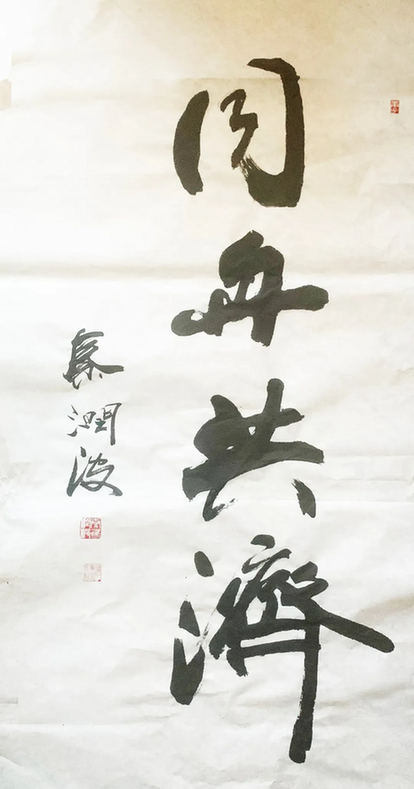 同舟共濟
秦潤波